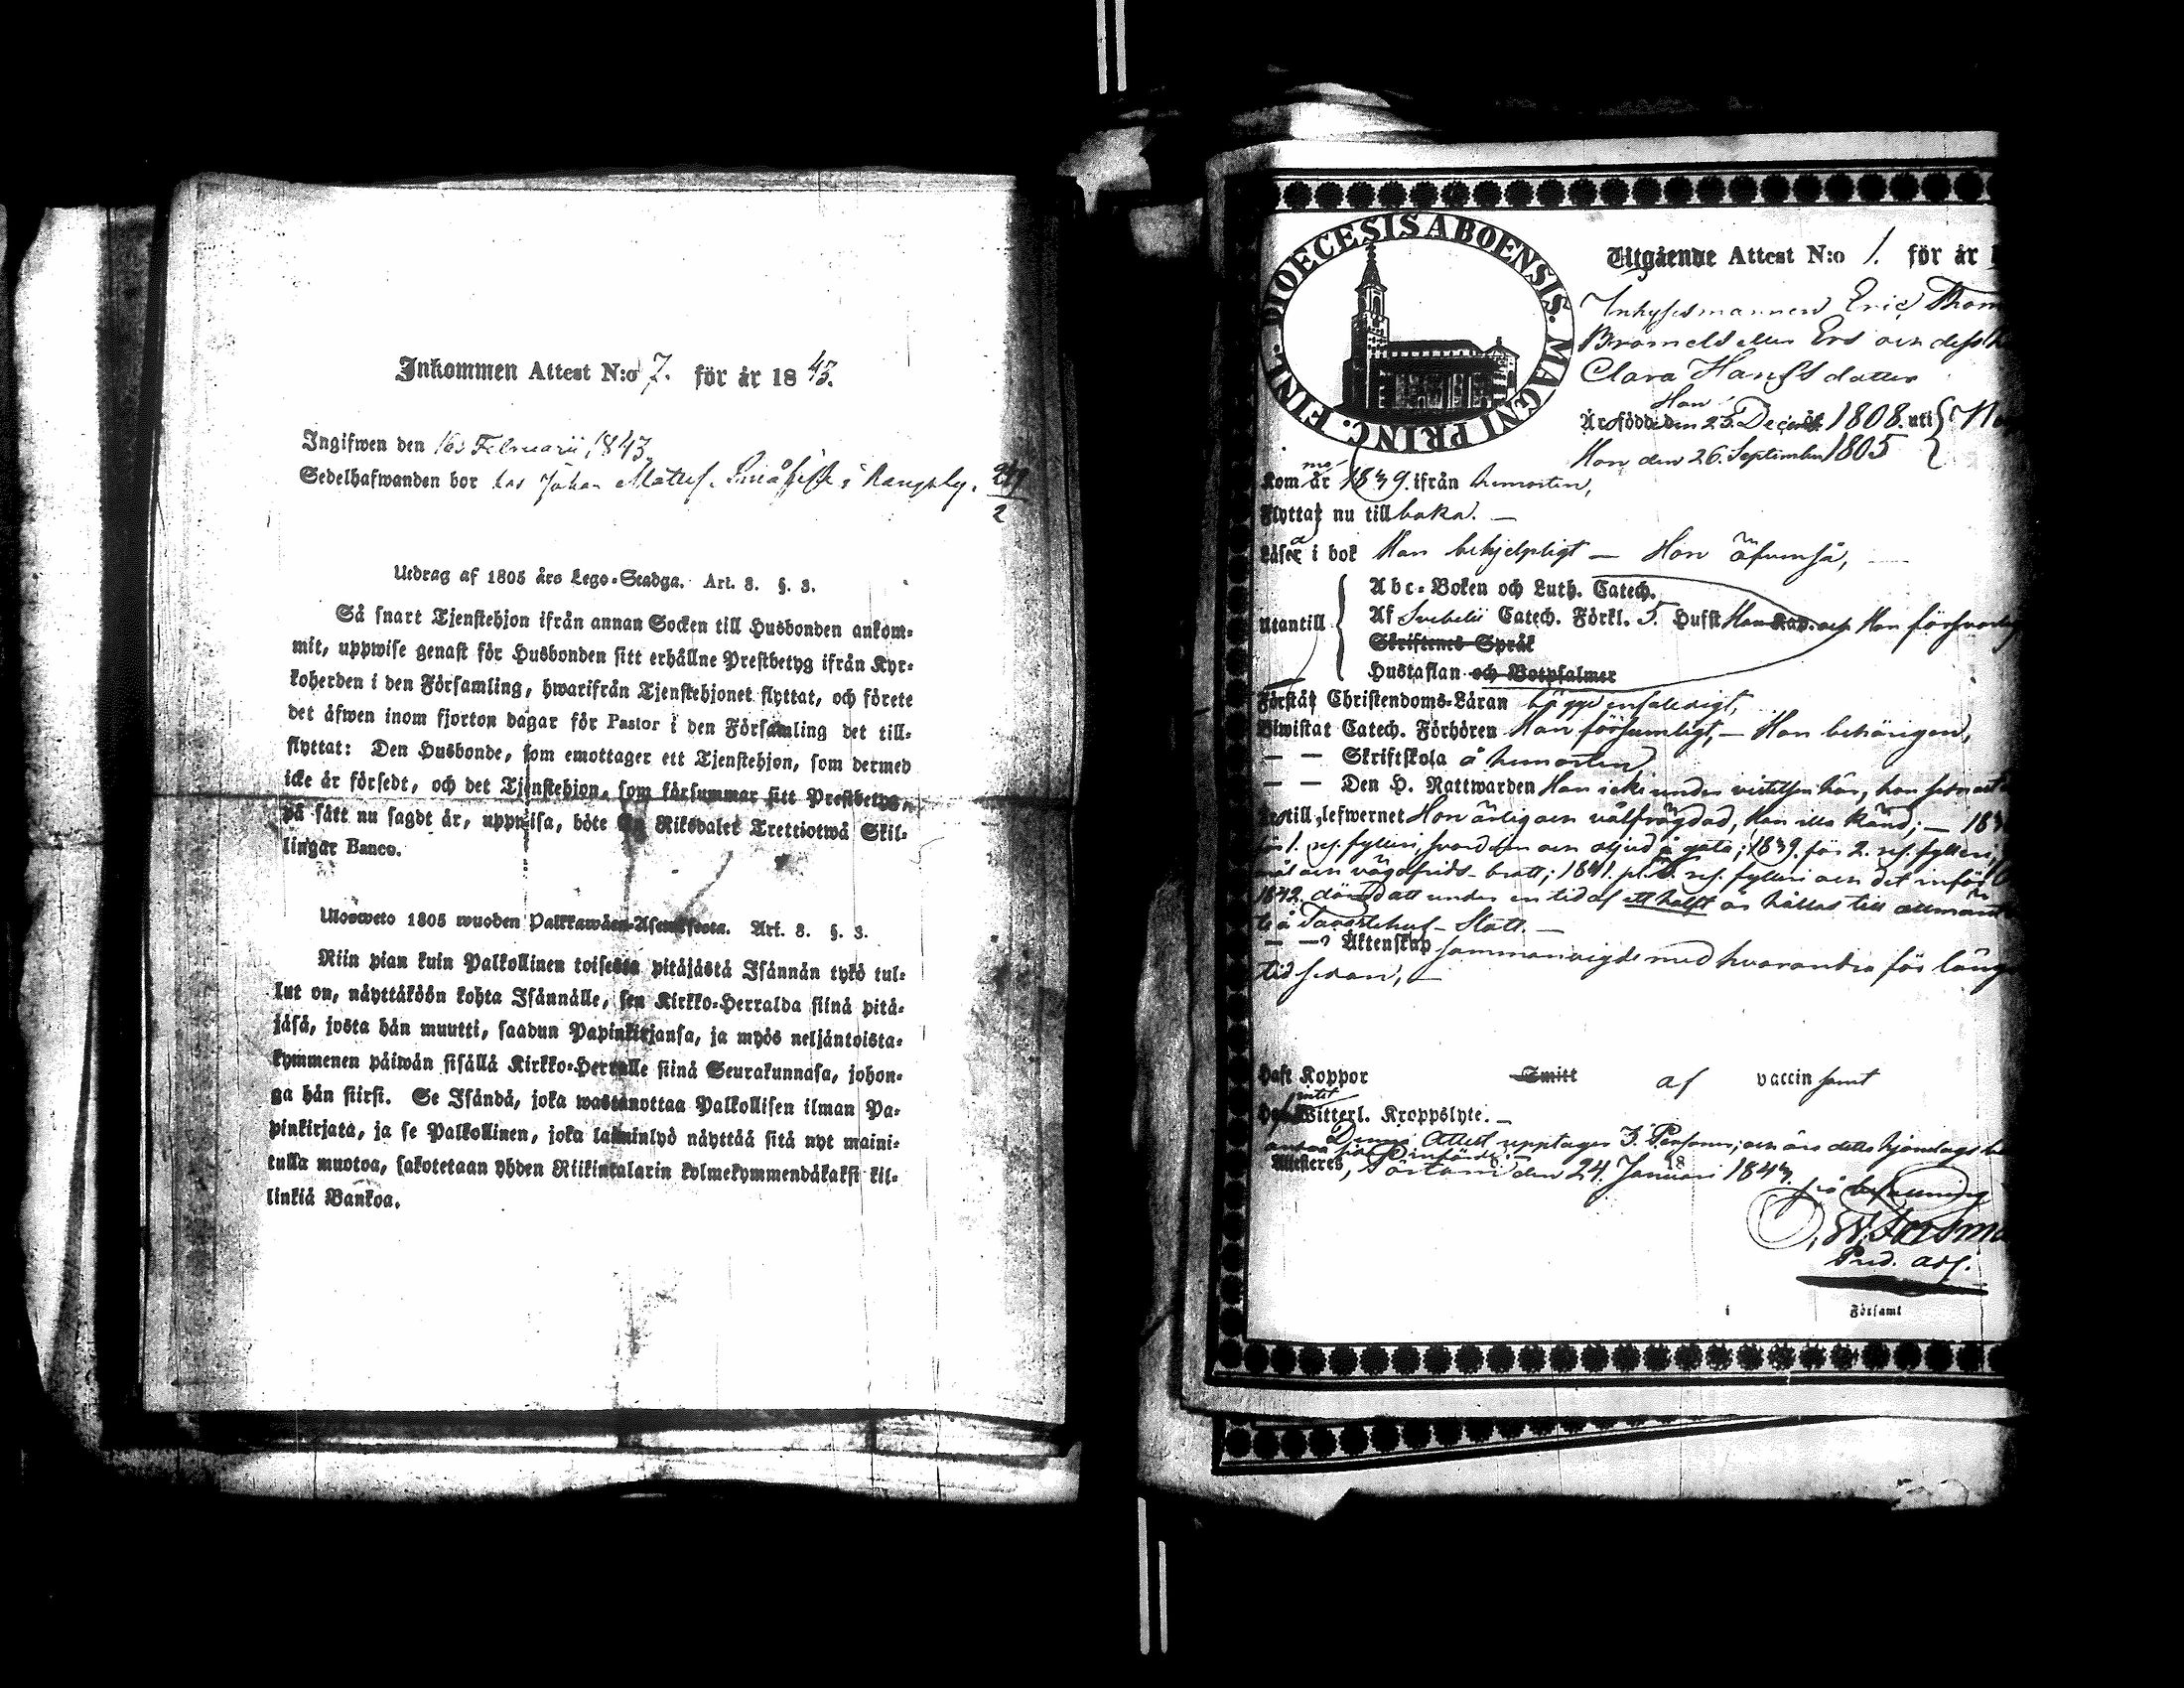 Inkommen Attest N:o 7. för år 1843.
Ingifwen den 16 Februarii 1843
Sedelhafwanden bor hos Johan Mattss. i Kangsby. 249/2
Utdrag af 1805 års Lego-Stadga. Art. 8. §. 3.
Så snart Tjenstehjon ifrån annan Socken till Husbonden ankom-
mit, uppwise genast för Husbonden sitt erhållne Prestbetyg ifrån Kyr-
koherden i den Församling, hwarifrån Tjenstehjonet flyttat, och förete
det äfwen inom fjorton dagar för Pastor i den Församling det till-
flyttat: Den Husbonde, som emottager ett Tjenstehjon, som dermed
icke är försedt, och det Tjenstehjon, som försummar sitt Prestbetyg,
på sätt nu sagdt är, uppwisa, böte En Riksdaler Trettiotwå Skil-
lingar Banco.
Ulosweto 1805 wuoden Palkkawäen-Asetuksesta. Art. 8. §. 3.
Niin pian kuin Palkollinen toisesta pitäjästä Isännän tykö tul-
lut on, näyttäköön kohta Isännälle, sen Kirkko-Herralda siinä pitä-
jäsä, josta hän muutti, saadun Papinkirjansa, ja myös neljäntoista-
kymmenen päiwän sisällä Kirkko-Herralle siinä Seurakunnasa, johon-
ga hän siirsi. Se Isändä, joka wastanottaa Palkollisen ilman Pa-
pinkirjata, ja se Palkollinen, joka laiminlyö näyttää sitä nyt maini-
tulla muotoa, sakotetaan yhden Riikintalarin kolmekymmendäkaksi kil-
linkiä Bankoa.
DIOECESIS ABOENSIS. MAGNI PRINC. FINL.
Utgående Attest N:o 1. för år
Inhysesmannen Eric Thom
Bromels eller Ers och dess
Clara Hansdotter
Han
Är född den 23. Decemb. 1808. uti
Hon den 26. September 1805
Kom år 1839. ifrån hemorten,
Flytta nu tillbaka. —
Läser i bok Han behjelpligt — Hon öfvenså,
Abc-Boken och Luth. Catech.
Utantill Af Svebelii Catech. Förkl. 5. Hufst Han och Hon försvarlig
Skriftenes Språk
Hustaflan och Botpsalmer
Förstår Christendoms-Läran bägge enfaldigt,
Biwistat Catech. Förhören Han försumligt, — Hon behörigen,
— — Skriftskola å hemorten
— — Den H. Nattwarden Han icke under vistelsen här, hon senast
till lefwernet Hon ärlig och välfrägdad, han illa känd; — 18
för 1. resf. fylleri, svordom och oljud å gata; 1839. för 2. resf. fylleri,
och vägafrids-brott; 1841. resf. fylleri och det inför
1842 dömd att under en tid af ett halft år hållas till allmänt
å Tavastehus Slott. —
— — Äktenskap sammanvigde med hvarandra för lång
tid sedan, —
Haft Koppor Smitt af vaccin samt
intet
Witterl. Kroppslyte. —
Denna Attest upptager 3. Personer, och
Attesteres, den 24. Januari 1843.
på befallning
Pred. adj.
i Församl